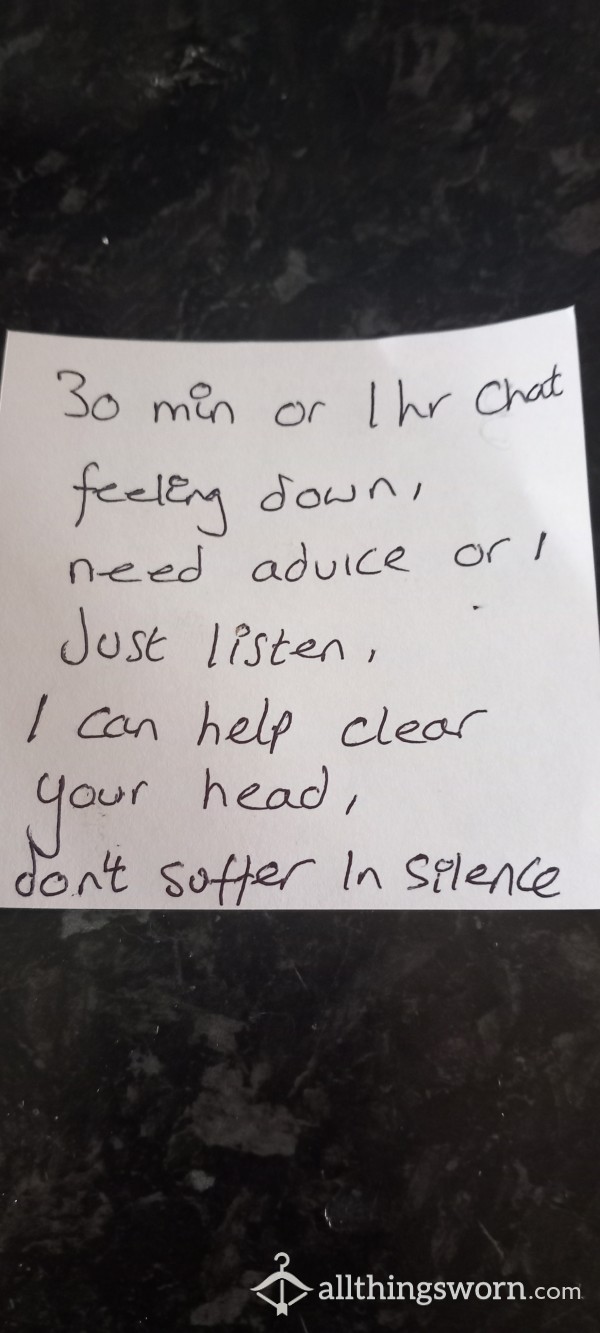 30 min or 1 hr chat
feeling down,
need advice or I
Just listen,
I can help clear
your head,
don't suffer In silence
allthingsworn.com